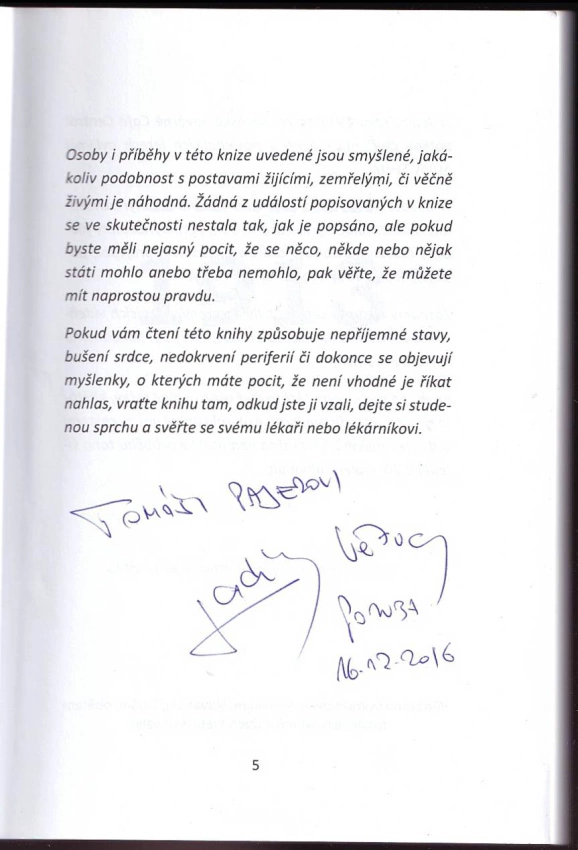 Osoby i příběhy v této knize uvedené jsou smyšlené, jaká-
koliv podobnost s postavami žijícími, zemřelými, či věčně
živými je náhodná. Žádná z událostí popisovaných v knize
se ve skutečnosti nestala tak, jak je popsáno, ale pokud
byste měli nejasný pocit, že se něco, někde nebo nějak
státi mohlo anebo třeba nemohlo, pak věřte, že můžete
mít naprostou pravdu.
Pokud vám čtení této knihy způsobuje nepříjemné stavy,
bušení srdce, nedokrvení periferií či dokonce se objevují
myšlenky, o kterých máte pocit, že není vhodné je říkat
nahlas, vraťte knihu tam, odkud jste ji vzali, dejte si stude-
nou sprchu a svěřte se svému lékaři nebo lékárníkovi.
TOMÁŠI PAJEROVI
16.12.2016
5